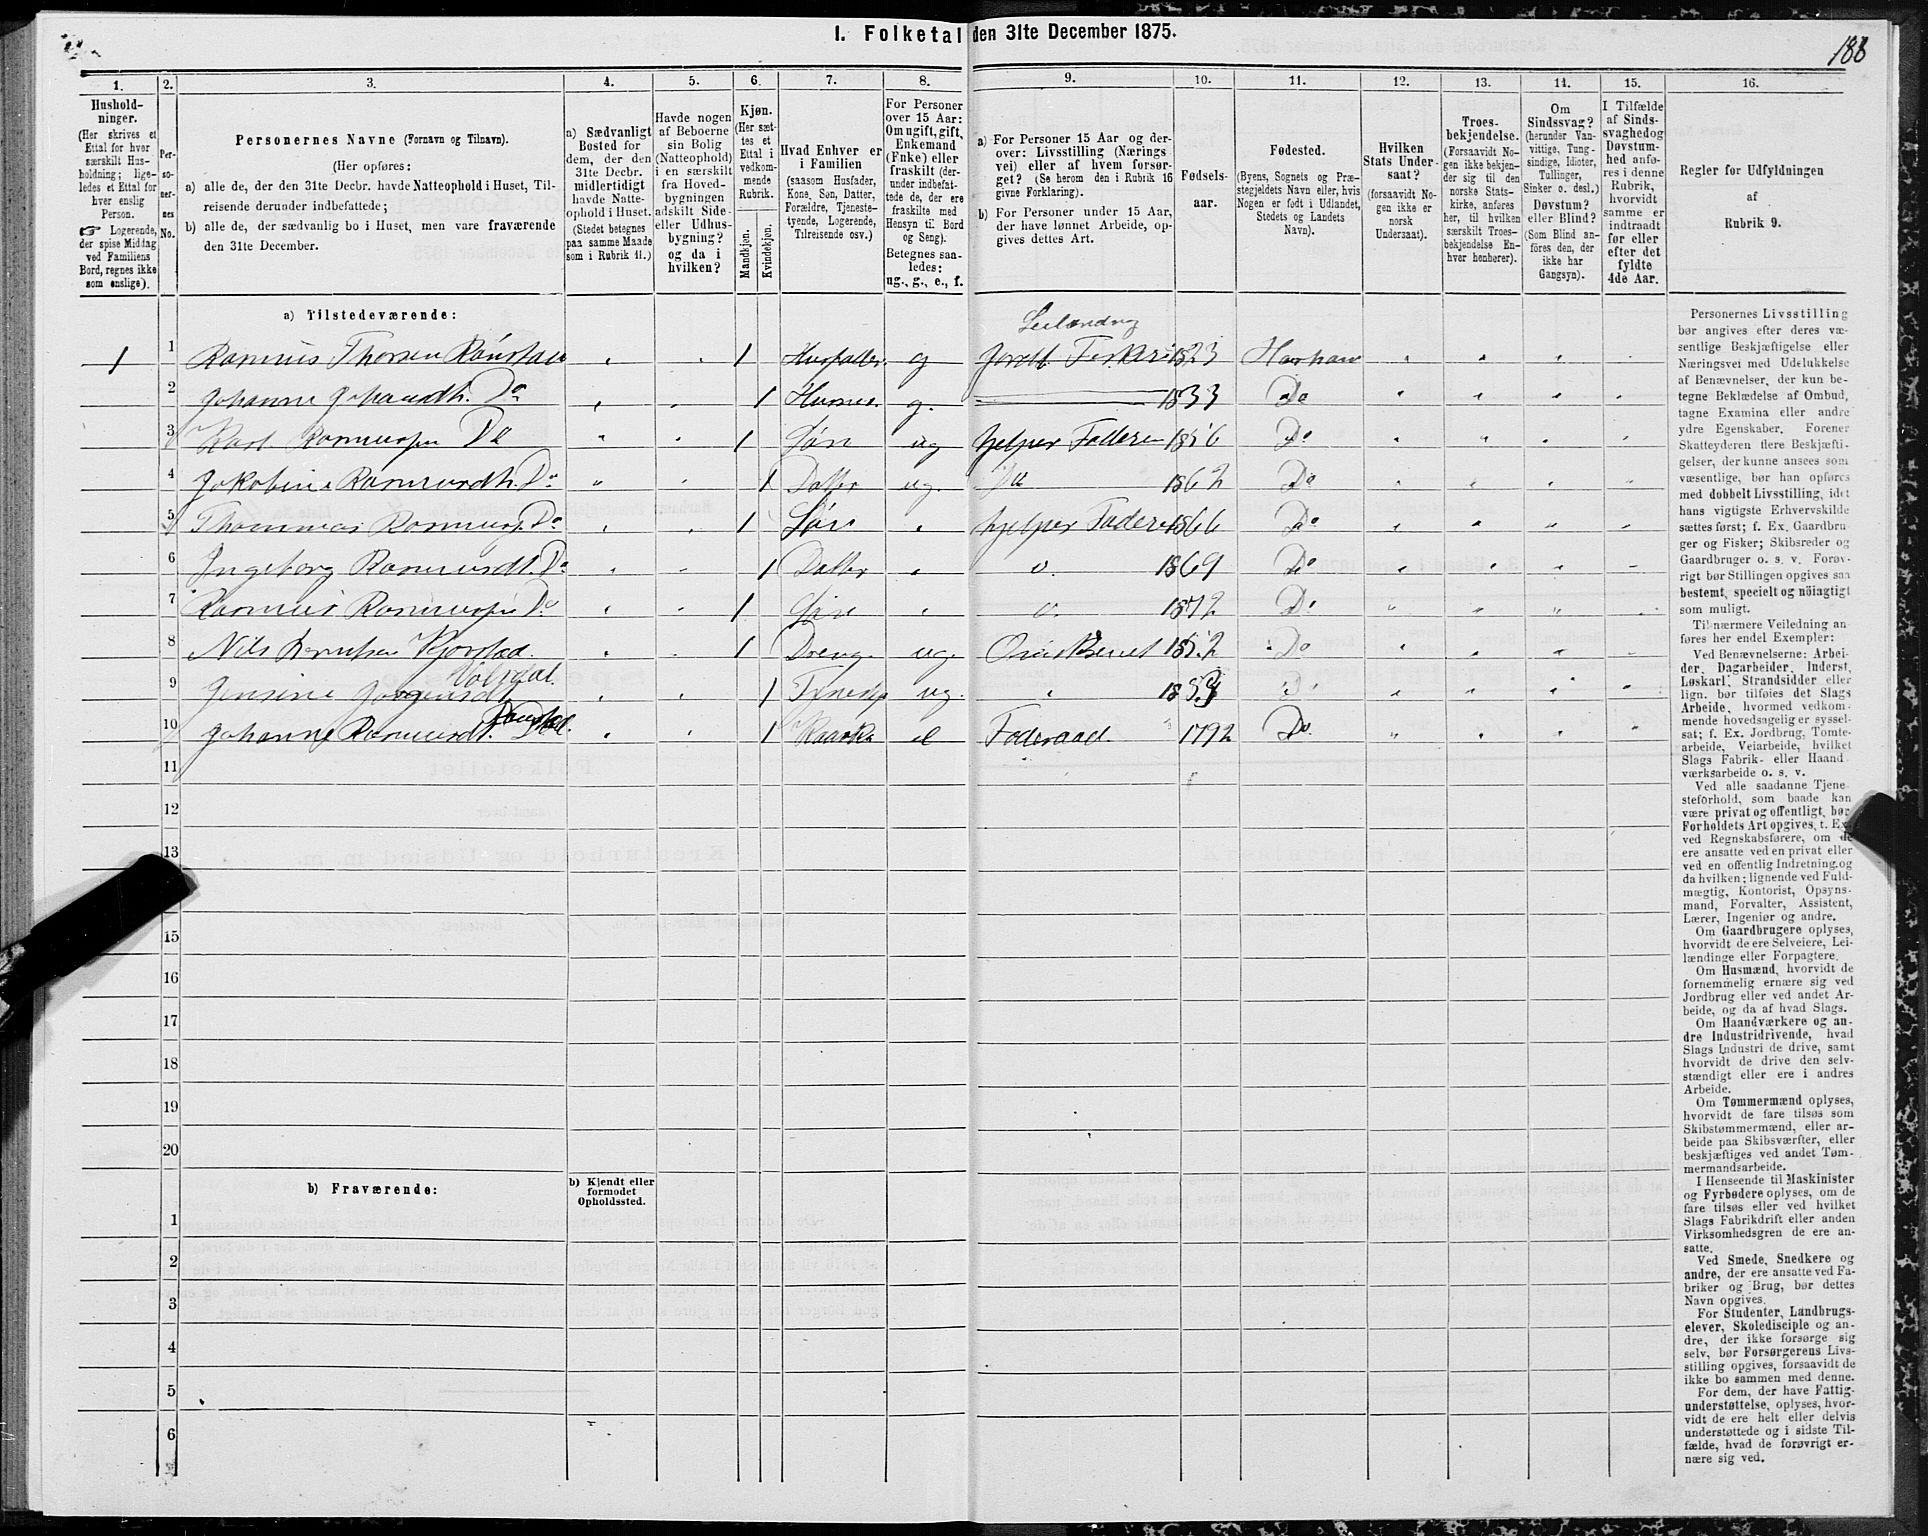 I. Folketal den 31te December 1875.
188
1. 2. 3. 4. 5. 6. 7. 8. 9. 10. 11. 12. 13. 14. 15. 16.
Hushold-
ninger.
(Her skrives et
Ettal for hver
særskilt Hus-
holdning; lige-
ledes et Ettal for
hver enslig
Person.
☞ Logerende,
der spise Middag
ved Familiens
Bord, regnes ikke
som enslige).
Per-
so-
ner-
nes
No.
Personernes Navne (Fornavn og Tilnavn).
(Her opføres:
a) alle de, der den 31te Decbr. havde Natteophold i Huset, Til-
reisende derunder indbefattede;
b) alle de, der sædvanlig bo i Huset, men vare fraværende
den 31te December.
a) Sædvanligt
Bosted for
dem, der den
31te Decbr.
midlertidigt
havde Natte-
ophold i Huset.
(Stedet betegnes
paa samme Maade
som i Rubrik 11.)
Havde nogen
af Beboerne
sin Bolig
(Natteophold)
i en særskilt
fra Hoved-
bygningen
adskilt Side-
eller Udhus-
bygning?
og da i
hvilken?
Kjøn.
(Her sæt-
tes et
Ettal i
vedkom-
mende
Rubrik.)
Mandkjøn.
Kvindekjøn.
Hvad Enhver er
i Familien
(saasom Husfader,
Kone, Søn, Datter,
Forældre, Tjeneste-
tyende, Logerende,
Tilreisende osv.)
For Personer
over 15 Aar:
Om ugift, gift,
Enkemand
(Enke) eller
fraskilt (der-
under indbefat-
tede de, der ere
fraskilte med
Hensyn til Bord
og Seng).
Betegnes saa-
ledes:
ug., g., e., f.
a) For Personer 15 Aar og der-
over: Livsstilling (Nærings
vei) eller af hvem forsør-
get? (Se herom den i Rubrik 16
givne Forklaring).
b) For Personer under 15 Aar,
der have lønnet Arbeide, op-
gives dettes Art.
Fødsels-
aar.
Fødested.
(Byens, Sognets og Præ-
stegjeldets Navn eller, hvis
Nogen er født i Udlandet,
Stedets og Landets
Navn).
Hvilken
Stats Under-
saat?
(forsaavidt No-
gen ikke er
norsk
Undersaat).
Troes-
bekjendelse.
(Forsaavidt No-
gen ikke bekjen-
der sig til den
norske Stats-
kirke, anføres
her, til hvilken
særskilt Troes-
bekjendelse En-
hver henhører).
Om
Sindssvag?
(herunder Van-
vittige, Tung-
sindige, Idioter,
Tullinger,
Sinker o. desl.)
Døvstum?
eller Blind?
(Som Blind an-
føres den, der
ikke har
Gangsyn).
I Tilfælde
af Sinds-
svaghed og
Døvstum-
hed anfø-
res i denne
Rubrik,
hvorvidt
samme er
indtraadt
før eller
efter det
fyldte
4de Aar.
Regler for Udfyldningen
af
Rubrik 9.
a) Tilstedeværende:
Leilændng
1 1 Rasmus Thorsen 1 Husfader g Fisker 1823 Harham
2 Johanne Do 1 Husm. g. 1833 Do
3 Karl Rasmussen Do 1 Søn ug hjelper Faderen 1856 Do
4 Jakobine Rasmusdtr. Do 1 Datter ug. Do 1862 Do
5 Thommas Rasmuss Do 1 Søn hjelper Faderen 1866 Do
6 Ingeborg Rasmusdt. Do 1 Datter 1869 Do
7 Rasmus Rasmussen Do 1 Søn 1872 Do
8 Nils 1 Dreng ug. 1852 Do
9 Jensine Jørgensdt 1 ug.
10 Johanne Rasmusdt. 1 e Føderaad. 1792 Do
11
12
13
15
16
17
18
19
20
b) Fraværende:
b) Kjendt eller
formodet
Opholdssted.
1
2
3
4
5
6
Personernes Livsstilling
bør angives efter deres væ-
sentlige Beskjæftigelse eller
Næringsvei med Udelukkelse
af Benævnelser, der kun be-
tegne Beklædelse af Ombud,
tagne Examina eller andre
ydre Egenskaber. Forener
Skatteyderen flere Beskjæfti-
gelser, der kunne ansees som
væsentlige, bør han opføres
med dobbelt Livsstilling, idet
hans vigtigste Erhvervskilde
sættes først; f. Ex. Gaardbru-
ger og Fisker; Skibsreder og
Gaardbruger o. s. v. Forøv-
rigt bør Stillingen opgives saa
bestemt, specielt og nøiagtigt
som muligt.
Til nærmere Veiledning an-
føres her endel Exempler:
Ved Benævnelserne: Arbei-
der, Dagarbeider, Inderst,
Løskarl, Strandsidder eller
lign. bør tilføies det Slags
Arbeide, hvormed vedkom-
mende hovedsagelig er syssel-
sat; f. Ex. Jordbrug, Tomte-
arbeide, Veiarbeide, hvilket
Slags Fabrik- eller Haand-
værksarbeide o. s. v.
Ved alle saadanne Tjene-
steforhold, som baade kan
være privat og offentligt, bør
Forholdets Art opgives, t. Ex.
ved Regnskabsførere, om de
ere ansatte ved en privat eller
ved en offentlig Indretning og
da hvilken; lignende ved Fuld-
mægtig, Kontorist, Opsyns-
mand, Forvalter, Assistent,
Lærer, Ingeniør og andre.
Om Gaardbrugere oplyses,
hvorvidt de ere Selveiere, Lei-
lændinge eller Forpagtere.
Om Husmænd, hvorvidt de
fornemmelig ernære sig ved
Jordbrug eller ved andet Ar-
beide, og da af hvad Slags.
Om Haandværkere og an-
dre Industridrivende, hvad
Slags Industri de drive, samt
hvorvidt de drive den selv-
stændigt eller ere i andres
Arbeide.
Om Tømmermænd oplyses,
hvorvidt de fare tilsøs som
Skibstømmermænd, eller ar-
beide paa Skibsværfter, eller
beskjæftiges ved andet Tøm-
mermandsarbeide.
I Henseende til Maskinister
og Fyrbødere oplyses, om de
fare tilsøs eller ved hvilket
Slags Fabrikdrift eller anden
Virksomhedsgren de ere an-
satte.
Ved Smede, Snedkere og
andre, der ere ansatte ved Fa-
briker og Brug, bør dettes
Navn opgives.
For Studenter, Landbrugs-
elever, Skoledisciple og an-
dre, der ikke forsørge sig
selv, bør Forsørgerens Livs-
stilling opgives, forsaavidt de
ikke bo sammen med denne.
For dem, der have Fattig-
understøttelse, oplyses, hvor-
vidt de ere helt eller delvis
understøttede og i sidste Til-
fælde, hvad de forøvrigt er-
nære sig ved.